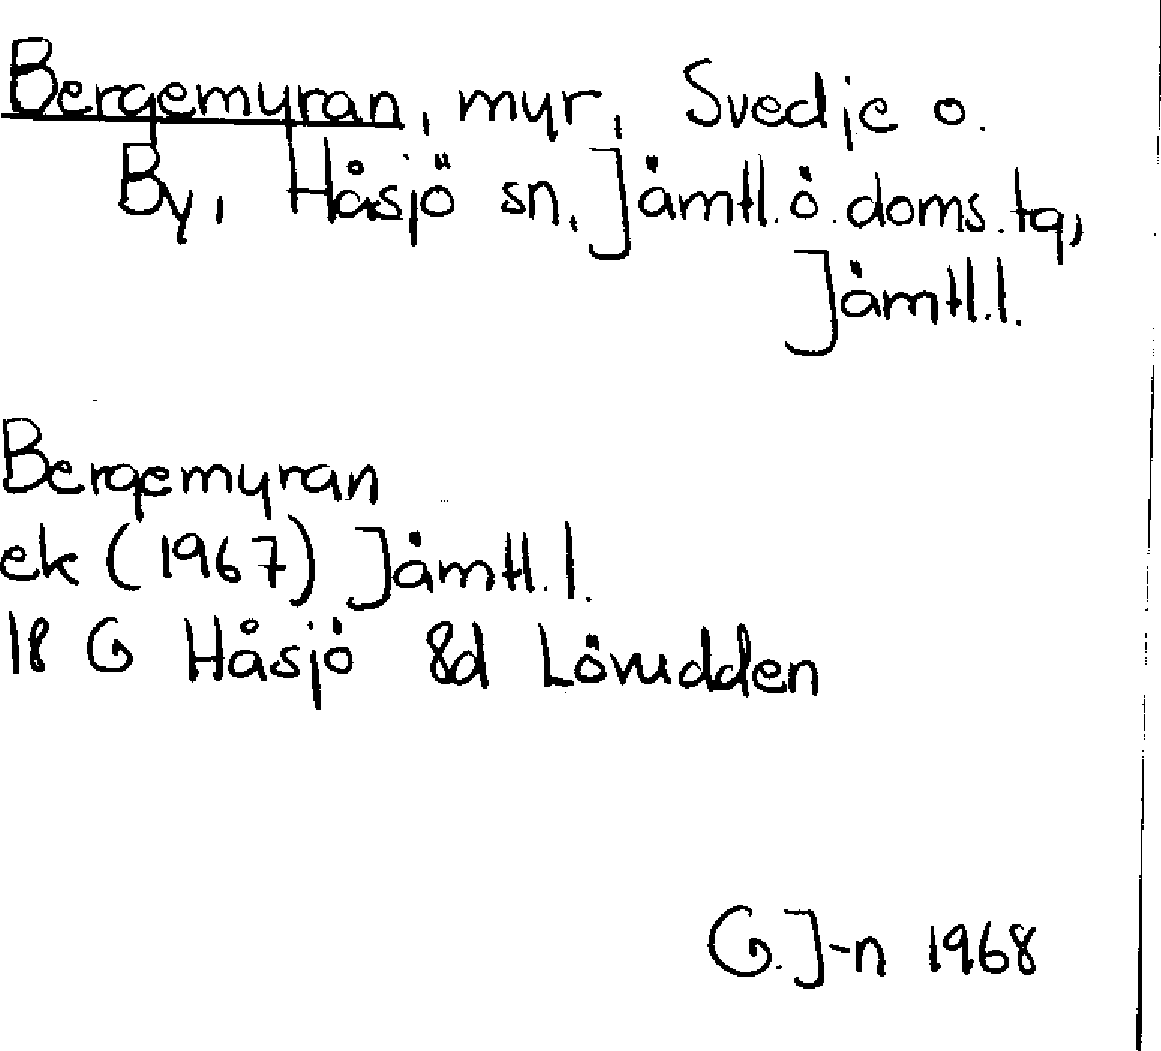 Bergemyran, myr, Svedje o.
By, Håsjö sn, Jämtl. ö. doms. tg,
Jämtl. l.
Bergemyran
ek (1967) Jämtl. l.
18 G Håsjö 8d Lövudden
G. J-n 1968